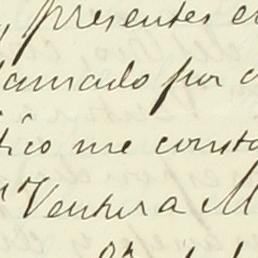 , presentes e
lamado por
tico me consta
Ventura M